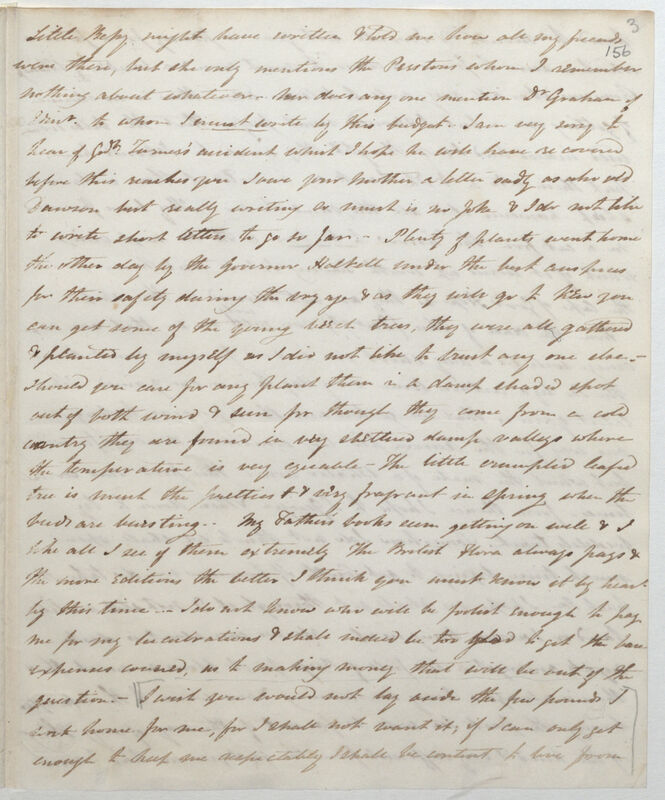 3
156
Little Hepy might have written & told me how all my friends
were there, but she only mentions the Pusstons whom I remember
nothing about whatever. Nor does any one mention Dr. Graham of
Edinr. to whom I must write by this budget. I am very sorry to
hear of Turner's accident which I hope he will have recovered
before this reaches you I owe your Mother a letter sadly as also old
Dawson but really writing so much is no joke & I do not like
to write short letters to go so far. — Plenty of plants went home
the other day by the Governor Halkett under the best auspices
for their safety during the voyage & as they will go to Kew you
can get some of the young beech trees, they were all gathered
& planted by myself as I did not like to trust any one else. —
Should you care for any plant them in a damp shaded spot
out of both wind & sun for though they come from a cold
country they are found in very sheltered damp valleys where
the temperature is very equable — The little crumpled leafed
tree is much the prettiest & very fragrant in spring when the
buds are bursting. My Father's books seem getting on well & I
like all I see of them extremely The British Flora always pays &
the more editions the better I think you must know it by heart
by this time — I do not know who will be foolish enough to pay
me for my lucubrations & shall indeed be too glad to get the bare
expenses covered, as to making money that will be out of the
question. — I wish you would not lay aside the few pounds I
sent home for me, for I shall not want it; if I can only get
enough to keep me respectably I shall be content to live from